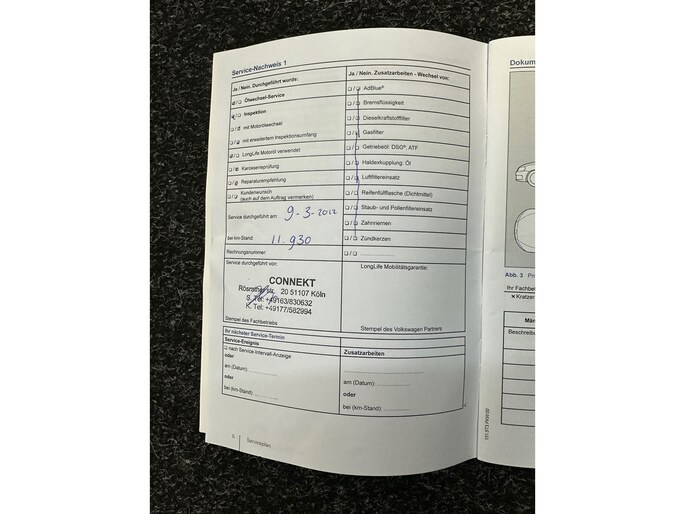 Service-Nachweis 1
Ja / Nein. Durchgeführt wurde:
Ölwechsel-Service
Inspektion
mit Motorölwechsel
mit erweitertem Inspektionsumfang
LongLife Motoröl verwendet
Karosserieprüfung
Reparaturempfehlung
Kundenwunsch
(auch auf dem Auftrag vermerken)
Service durchgeführt am: 9-3-2012
bei km-Stand: 11.930
Rechnungsnummer:
Service durchgeführt von:
CONNEKT
Rösrather str. 20 51107 Köln
S. Tel: +49163/830632
K. Tel: +49177/582994
Stempel des Fachbetriebs
Ja / Nein. Zusatzarbeiten - Wechsel von:
AdBlue®
Bremsflüssigkeit
Dieselkraftstofffilter
Gasfilter
Getriebeöl: DSG®, ATF
Haldexkupplung: Öl
Luftfiltereinsatz
Reifenfüllflasche (Dichtmittel)
Staub- und Pollenfiltereinsatz
Zahnriemen
Zündkerzen
LongLife Mobilitätsgarantie:
Stempel des Volkswagen Partners
Ihr nächster Service-Termin
Service-Ereignis
nach Service-Intervall-Anzeige
oder
am (Datum):
oder
bei (km-Stand):
Zusatzarbeiten
am (Datum):
oder
bei (km-Stand):
6 Serviceplan
Dokum
Abb. 3 Pr
Ihr Fachbet
× Kratzer
Män
Beschreibu